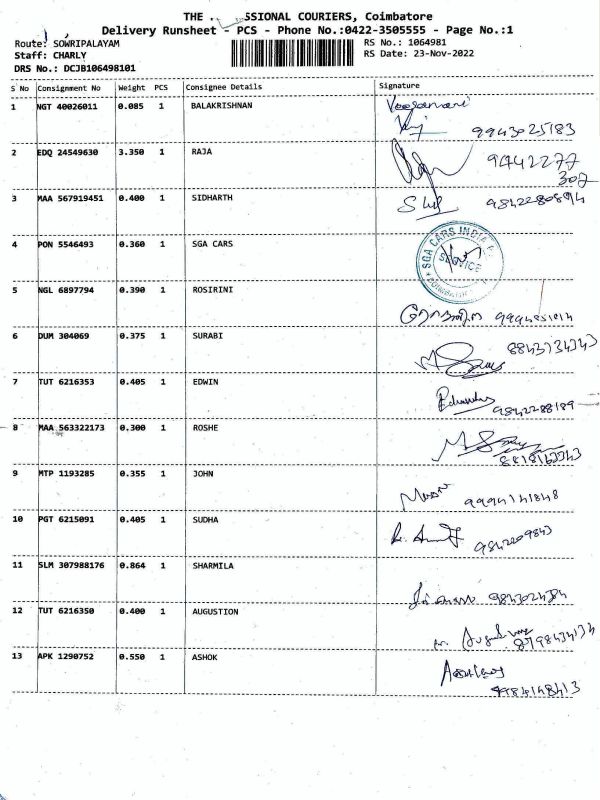 THE SSIONAL COURIERS, Coimbatore
Delivery Runsheet - PCS - Phone No.:0422-3505555 - Page No.:1
Route: SOWRIPALAYAM RS No.: 1064981
Staff: CHARLY RS Date: 23-Nov-2022
DRS No.: DCJB106498101
S No Consignment No Weight PCS Consignee Details Signature
1 NGT 40026011 0.085 1 BALAKRISHNAN
9943025183
2 EDQ 24549630 3.350 1 RAJA
3 MAA 567919451 0.400 1 SIDHARTH
4 PON 5546493 0.360 1 SGA CARS
SGA CARS INDIA
SERVICE
5 NGL 6897794 0.390 1 ROSIRINI
6 DUM 304069 0.375 1 SURABI
7 TUT 6216353 0.405 1 EDWIN
9842288189
8 MAA 563322173 0.300 1 ROSHE
9 MTP 1193285 0.355 1 JOHN
9994141848
10 PGT 6215091 0.405 1 SUDHA
11 SLM 307988176 0.864 1 SHARMILA
12 TUT 6216350 0.400 1 AUGUSTION
13 APK 1290752 0.550 1 ASHOK